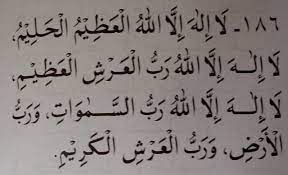 ١٨٦- لَا إِلٰهَ إِلَّا اللهُ الْعَظِيْمُ الْحَلِيْمُ،
لَا إِلٰهَ إِلَّا اللهُ رَبُّ الْعَرْشِ الْعَظِيْمِ،
لَا إِلٰهَ إِلَّا اللهُ رَبُّ السَّمٰوَاتِ، وَرَبُّ
الْأَرْضِ، وَرَبُّ الْعَرْشِ الْكَرِيْمِ.